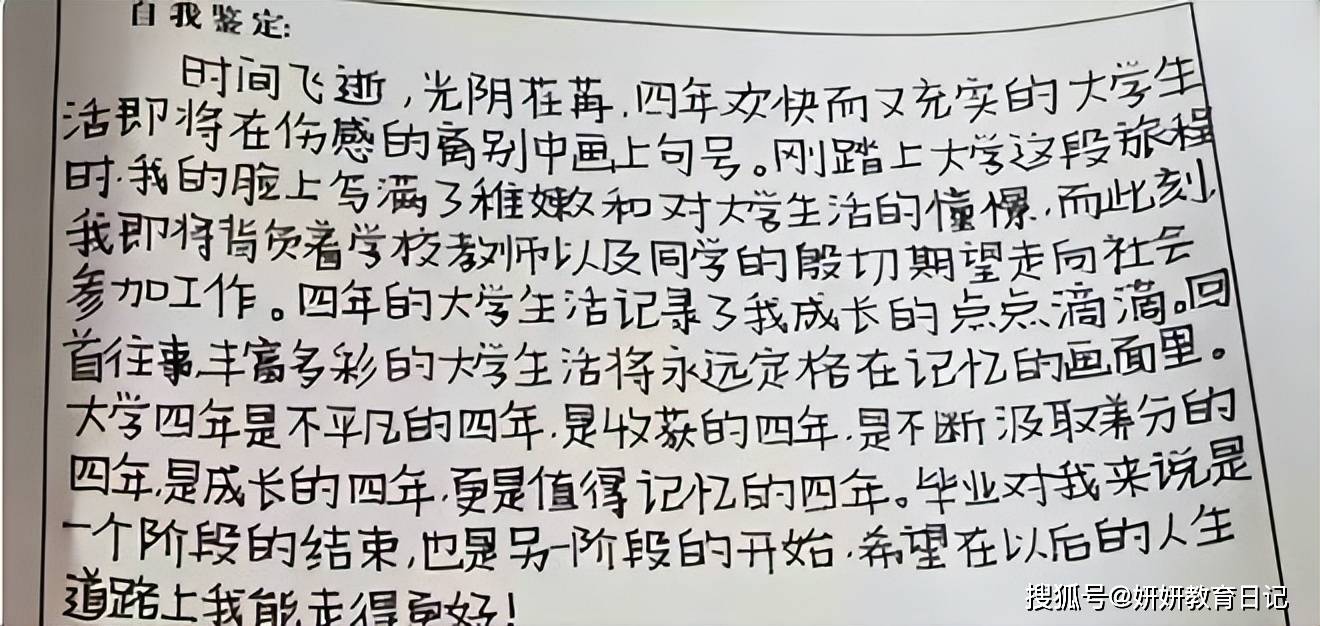 自我鉴定:
时间飞逝,光阴荏苒,四年欢快而又充实的大学生
活即将在伤感的离别中画上句号。刚踏上大学这段旅程
时,我的脸上写满了稚嫩和对大学生活的憧憬,而此刻
我即将背负着学校教师以及同学的殷切期望走向社会
参加工作。四年的大学生活记录了我成长的点点滴滴。回
首往事,丰富多彩的大学生活将永远定格在记忆的画面里。
大学四年是不平凡的四年,是收获的四年,是不断汲取养分的
四年,是成长的四年,更是值得记忆的四年。毕业对我来说是
一个阶段的结束,也是另一阶段的开始,希望在以后的人生
道路上我能走得更好!
搜狐号@妍妍教育日记